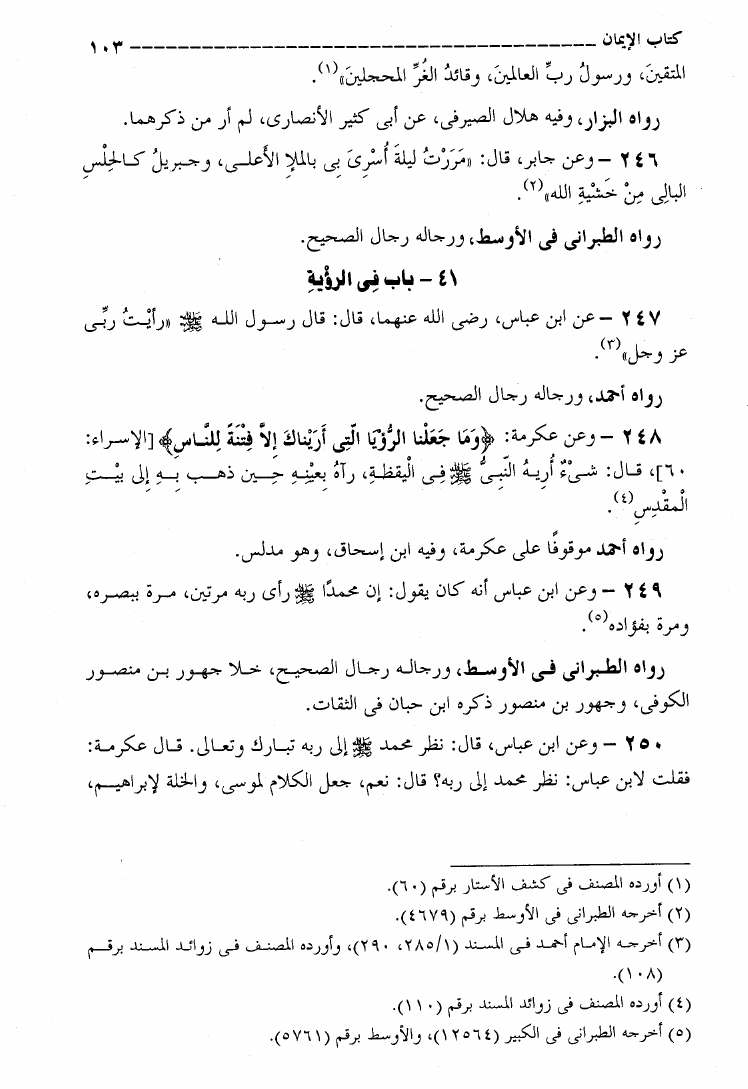 كتاب الإيمان ــــــــــــــــــــــــــــــــــــــــ ١٠٣
المتقينَ، ورسولُ ربِّ العالمينَ، وقائدُ الغُرِّ المحجلينَ»(١).
رواه البزار، وفيه هلال الصيرفى، عن أبى كثير الأنصارى، لم أر من ذكرهما.
٢٤٦ – وعن جابر، قال: «مَرَرْتُ ليلةَ أُسْرِىَ بِى بالملإ الأعلى، وجبريلُ كالحِلْسِ
البالِى مِنْ خَشْيَةِ الله»(٢).
رواه الطبرانى فى الأوسط، ورجاله رجال الصحيح.
٤١ – باب فِى الرؤْيةِ
٢٤٧ – عن ابن عباس، رضى الله عنهما، قال: قال رسول الله ﷺ «رأيْتُ ربِّى
عز وجل»(٣).
رواه أحمد، ورجاله رجال الصحيح.
٢٤٨ – وعن عكرمة: ﴿وَمَا جَعَلْنا الرُّؤْيَا الَّتِى أَرَيْناكَ إِلاَّ فِتْنَةً لِلنَّاسِ﴾ [الإسراء:
٦٠]، قال: شىْءٌ أُرِيهُ النَّبِىُّ ﷺ فِى الْيقظةِ، رآهُ بِعيْنِهِ حِين ذهب بِهِ إلى بيْتِ
الْمقْدِسِ(٤).
رواه أحمد موقوفًا على عكرمة، وفيه ابن إسحاق، وهو مدلس.
٢٤٩ – وعن ابن عباس أنه كان يقول: إن محمدًا ﷺ رأى ربه مرتين، مرة ببصره،
ومرة بفؤاده(٥).
رواه الطبرانى فى الأوسط، ورجاله رجال الصحيح، خلا جهور بن منصور
الكوفى، وجهور بن منصور ذكره ابن حبان فى الثقات.
٢٥٠ – وعن ابن عباس، قال: نظر محمد ﷺ إلى ربه تبارك وتعالى. قال عكرمة:
فقلت لابن عباس: نظر محمد إلى ربه؟ قال: نعم، جعل الكلام لموسى، والخلة لإبراهيم،
(١) أورده المصنف فى كشف الأستار برقم (٦٠).
(٢) أخرجه الطبرانى فى الأوسط برقم (٤٦٧٩).
(٣) أخرجه الإمام أحمد فى المسند (٢٨٥/١، ٢٩٠)، وأورده المصنف فى زوائد المسند برقم
(١٠٨).
(٤) أورده المصنف فى زوائد المسند برقم (١١٠).
(٥) أخرجه الطبرانى فى الكبير (١٢٥٦٤)، والأوسط برقم (٥٧٦١).